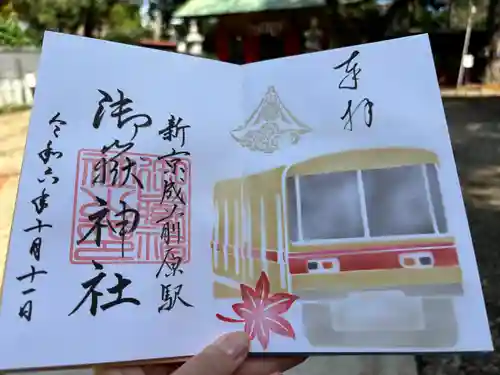 奉拝
新京成ノ前原駅
御嶽神社
令和六年十月十一日